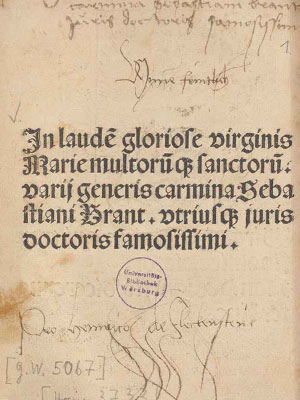 carmina Sebastiani Brant
juris doctoris famosissimi
1
In laudē gloriose virginis
Marie multorūqꝫ sanctorū.
varij generis carmina Seba
stiani Brant. vtriusqꝫ juris
doctoris famosissimi.
Universitäts-
Bibliothek
Würzburg
de
[G.W. 5067]